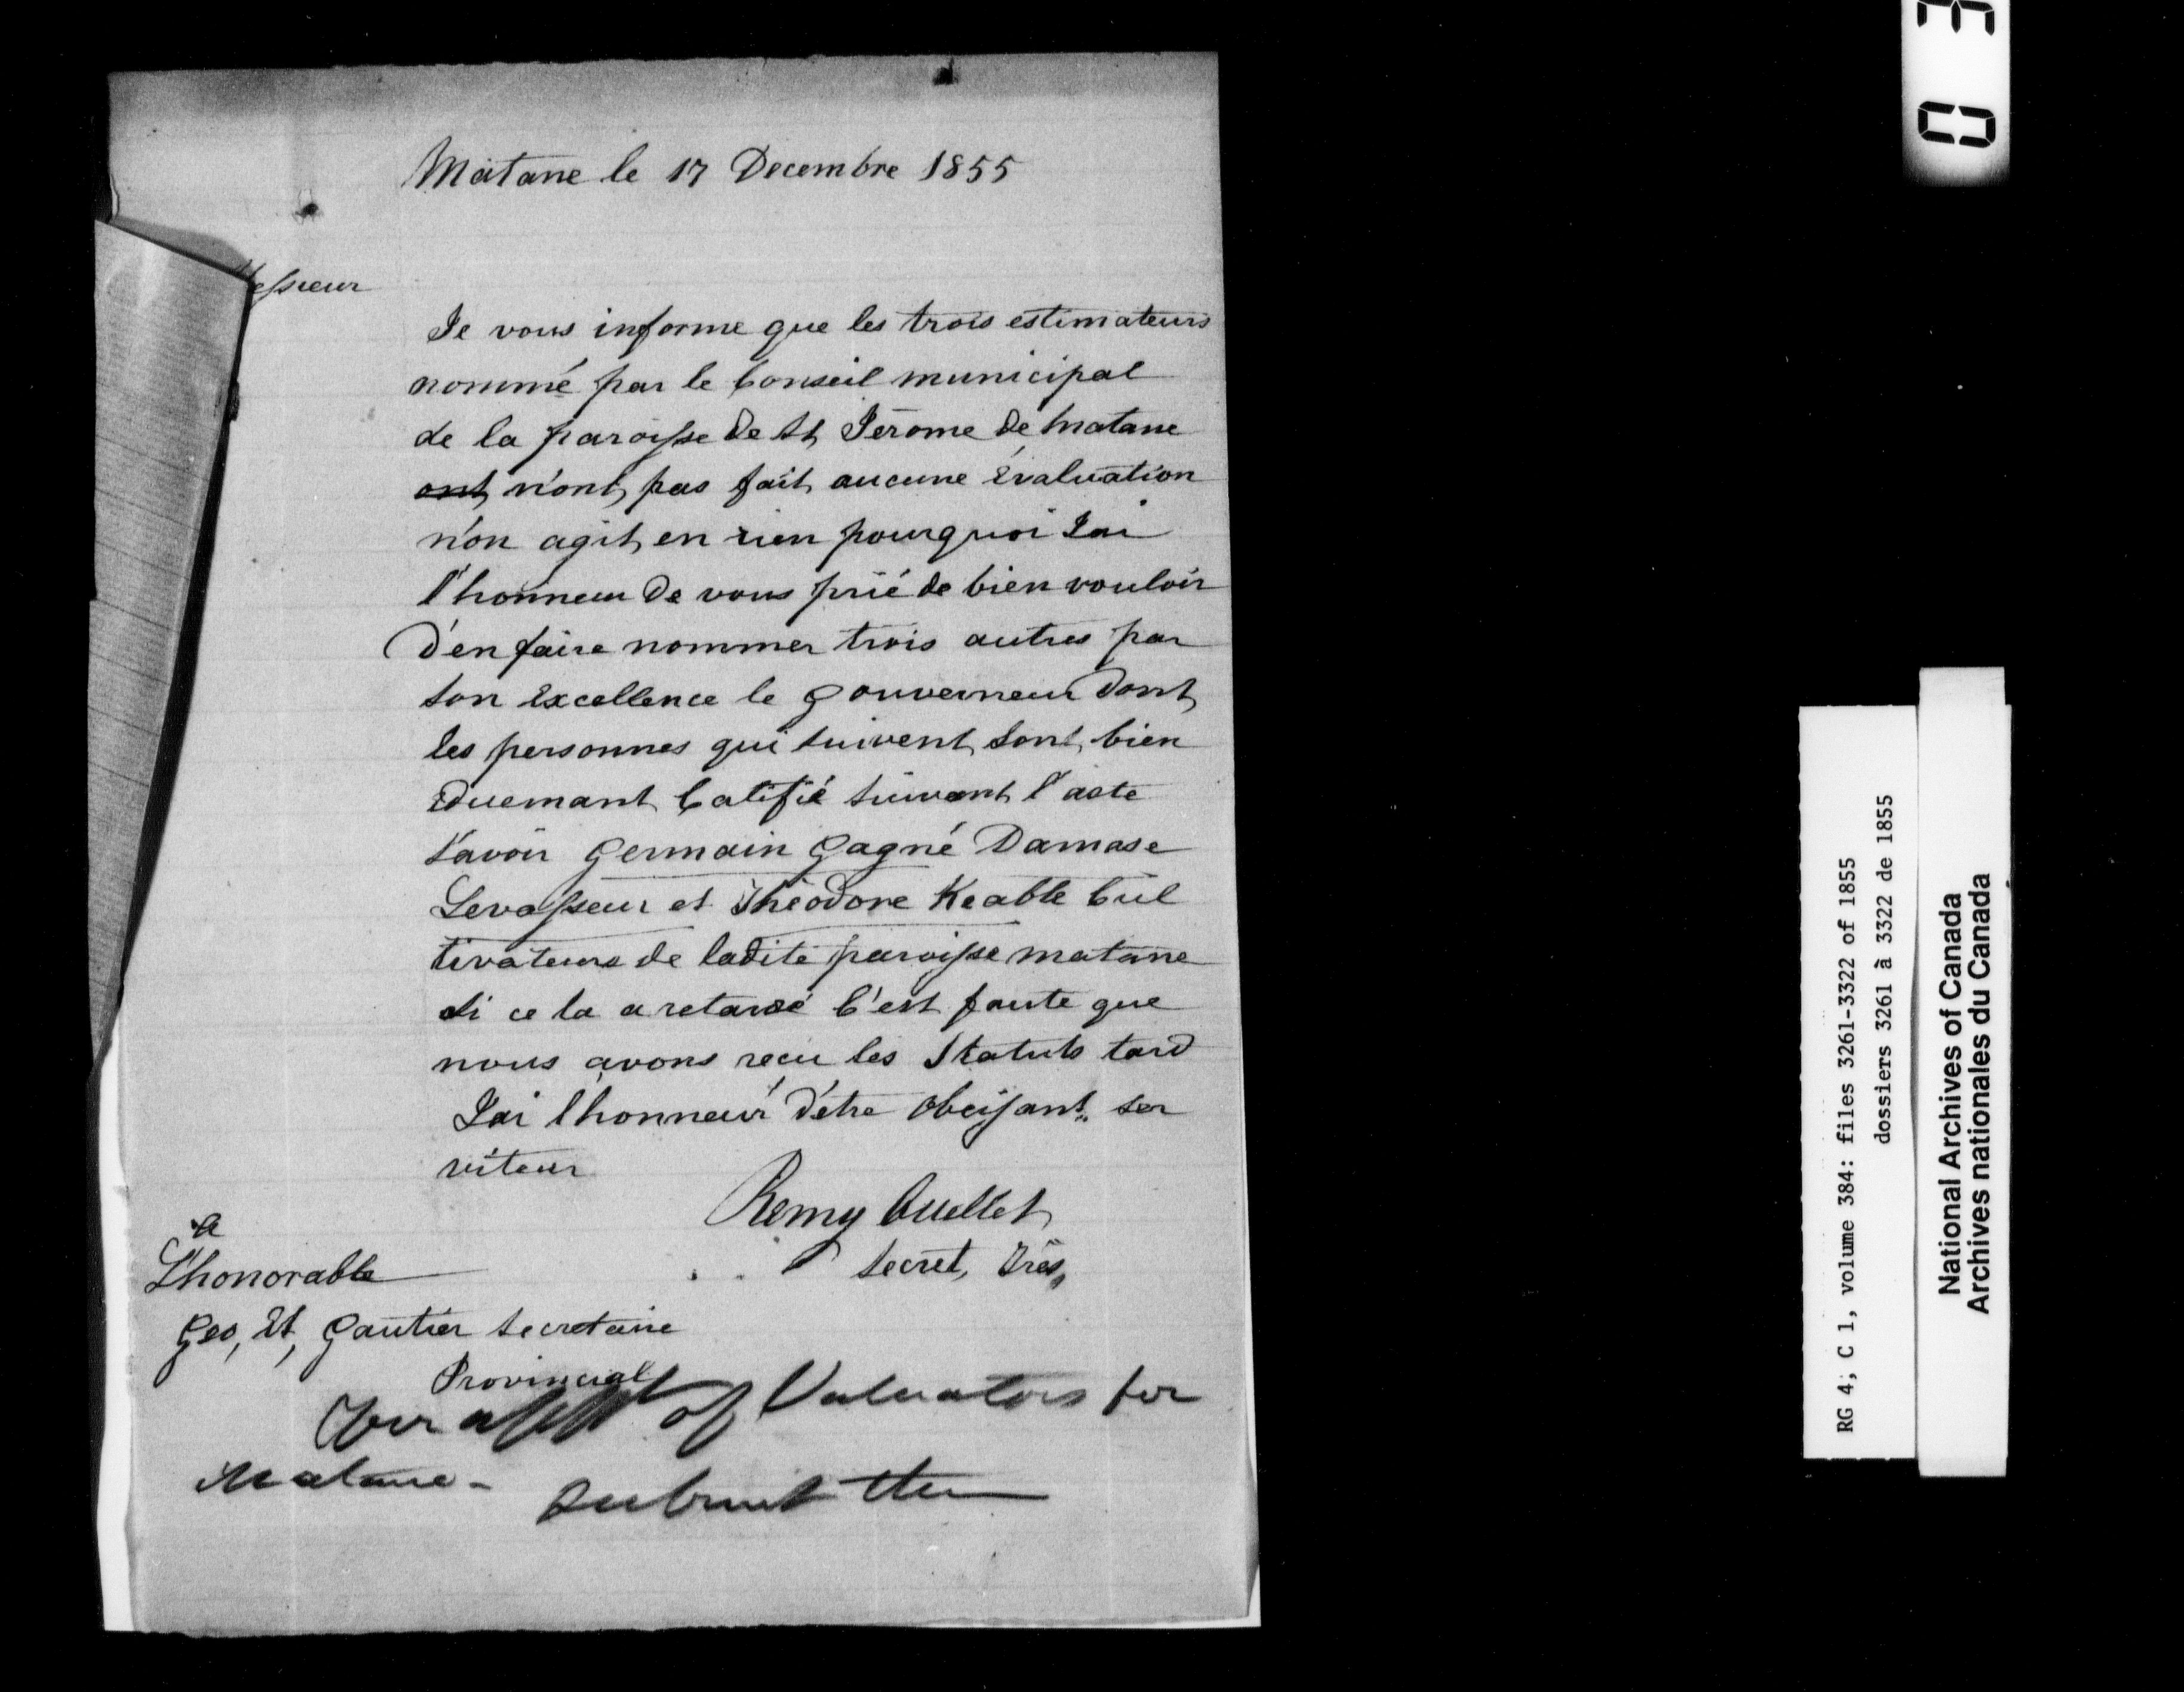 Matane le 17 Decembre 1855
essieur
Je vous informe que les trois estimateurs
nommé par le Conseil municipal
de la paroisse de St Jérome de Matane
ont n'ont pas fait aucune évaluation
n'on agit en rien pourquoi J'ai
l'honneur de vous prié de bien vouloir
d'en faire nommer trois autres par
son Excellence le Gouverneur dont
les personnes qui suivent sont bien
duemant Calified suivant l'acte
savoir Germain Gagné Damase
Levasseur et Théodore Keable Cul
tivateurs de ladite paroisse matane
si ce la a retardé C'est faute que
nous avons recu les Statuts tard
J'ai l'honneur d'être Obeissant ser
viteur
Remy Ouellet
Secret, Trés,
a
L'honorable
Geo, Et, Gautier Secretaire
Provincial
of Valuators for
Matane -
Submit
0 3
RG 4; C 1, volume 384: files 3261-3322 of 1855
dossiers 3261 à 3322 de 1855
National Archives of Canada
Archives nationales du Canada